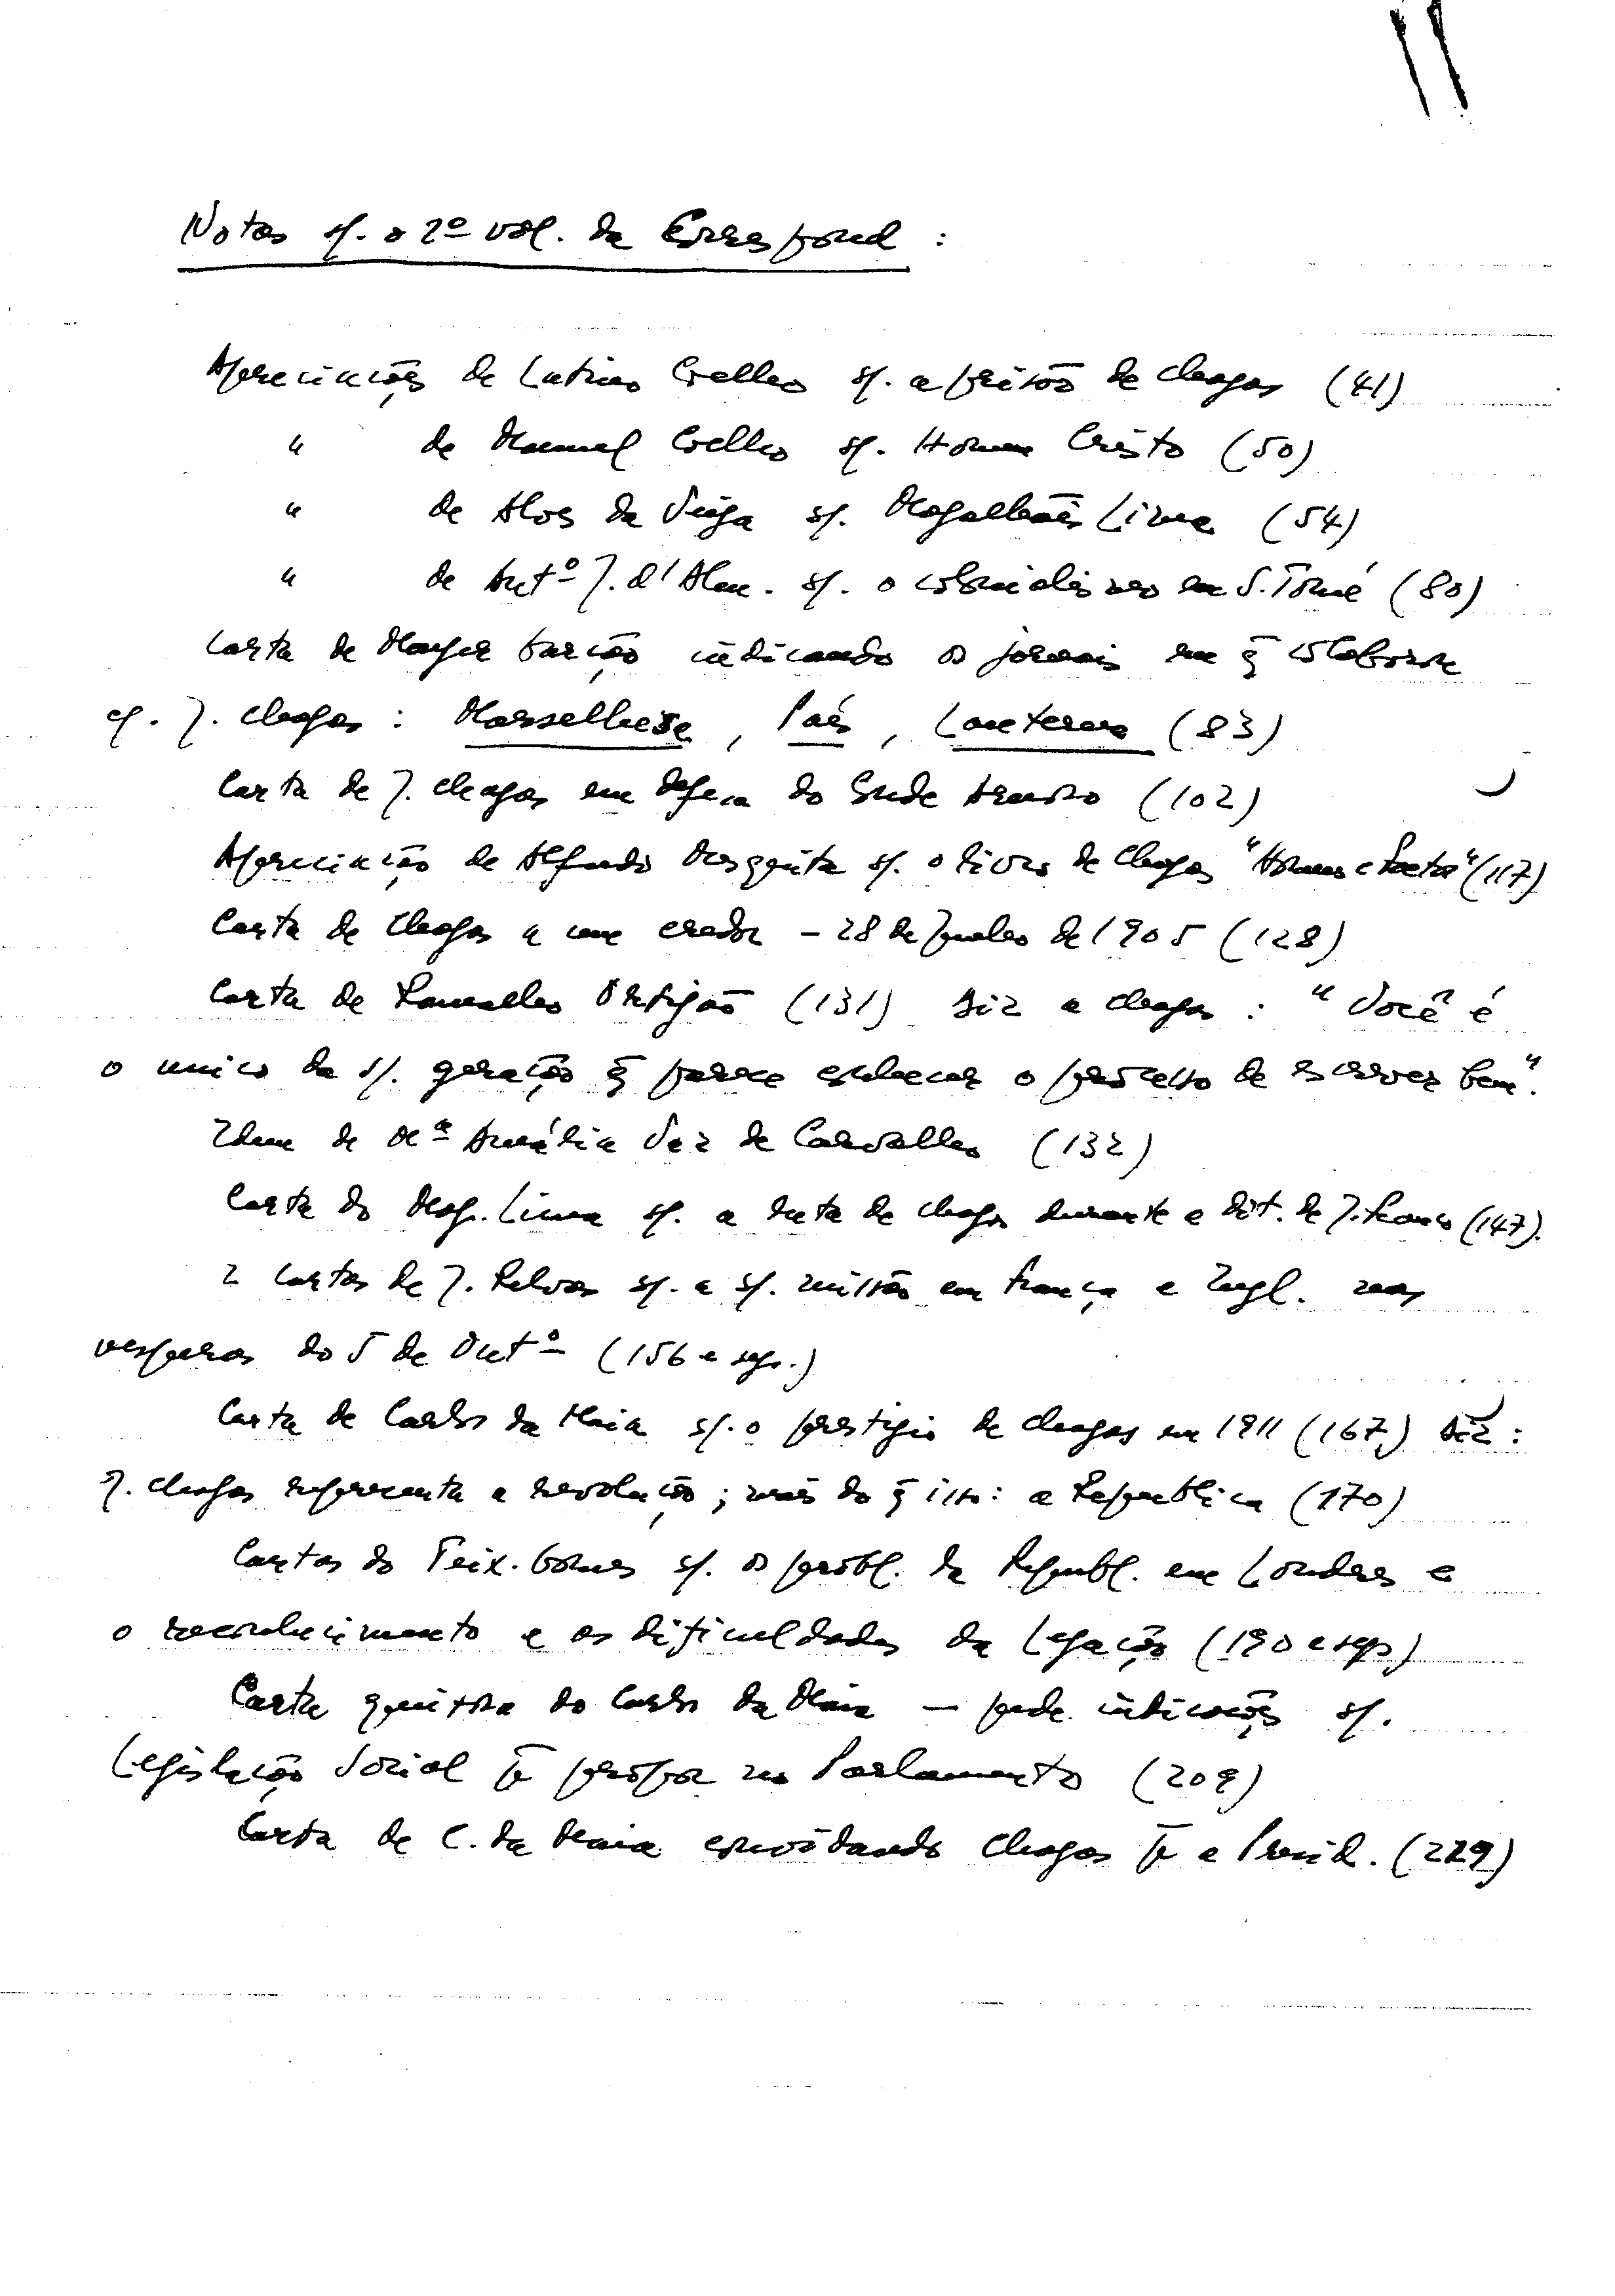 Notas s/. o 2º vol. da Correspond :
Apreciações de Latino Coelho s/. a prisão de Chagas (41)
" de Manuel Coelho s/. Homem Cristo (50)
" de Alves da Veiga s/. Magalhães Lima (54)
" de Antº J. d'Alm. s/. o colonialismo em S. Tomé (80)
Carta de Mayer Garção indicando os jornais em q̃ colaborou
c/. J. Chagas : Marselhesa, País, Lanterna (83)
Carta de J. Chagas em defesa do Gude Armsro (102)
Apreciação de Alfredo Mesquita s/. o livro de Chagas "Homens e Factos" (117)
Carta de Chagas a um credor – 28 de Junho de 1905 (128)
Carta de Ramalho Ortigão (131) Diz a Chagas : "Você é
o unico da s/. geração q̃ parece conhecer o processo de escrever bem".
Idem de Mª Amália Vaz de Carvalho (132)
Carta do Mag. Lima s/. a luta de Chagas durante a dit. de J. Franco (147).
2 cartas de J. Relvas s/. a s/. missão em França e Ingl. nas
vesperas do 5 de Outº (156 e segs.)
Carta de Carlos da Maia s/. o prestigio de Chagas em 1911 (167) Diz :
J. Chagas representa a revolução ; mais do q̃ isso : a Republica (170)
Cartas do Teix. Gomes s/. os probl. da Republ. em Londres e
o reconhecimento e as dificuldades da Legação (190 e segs)
Carta do Carlos da Maia – pede indicações s/.
Legislação Social p̃ propor no Parlamento (209)
Carta de C. da Maia convidando Chagas p̃ a Presid. (229)